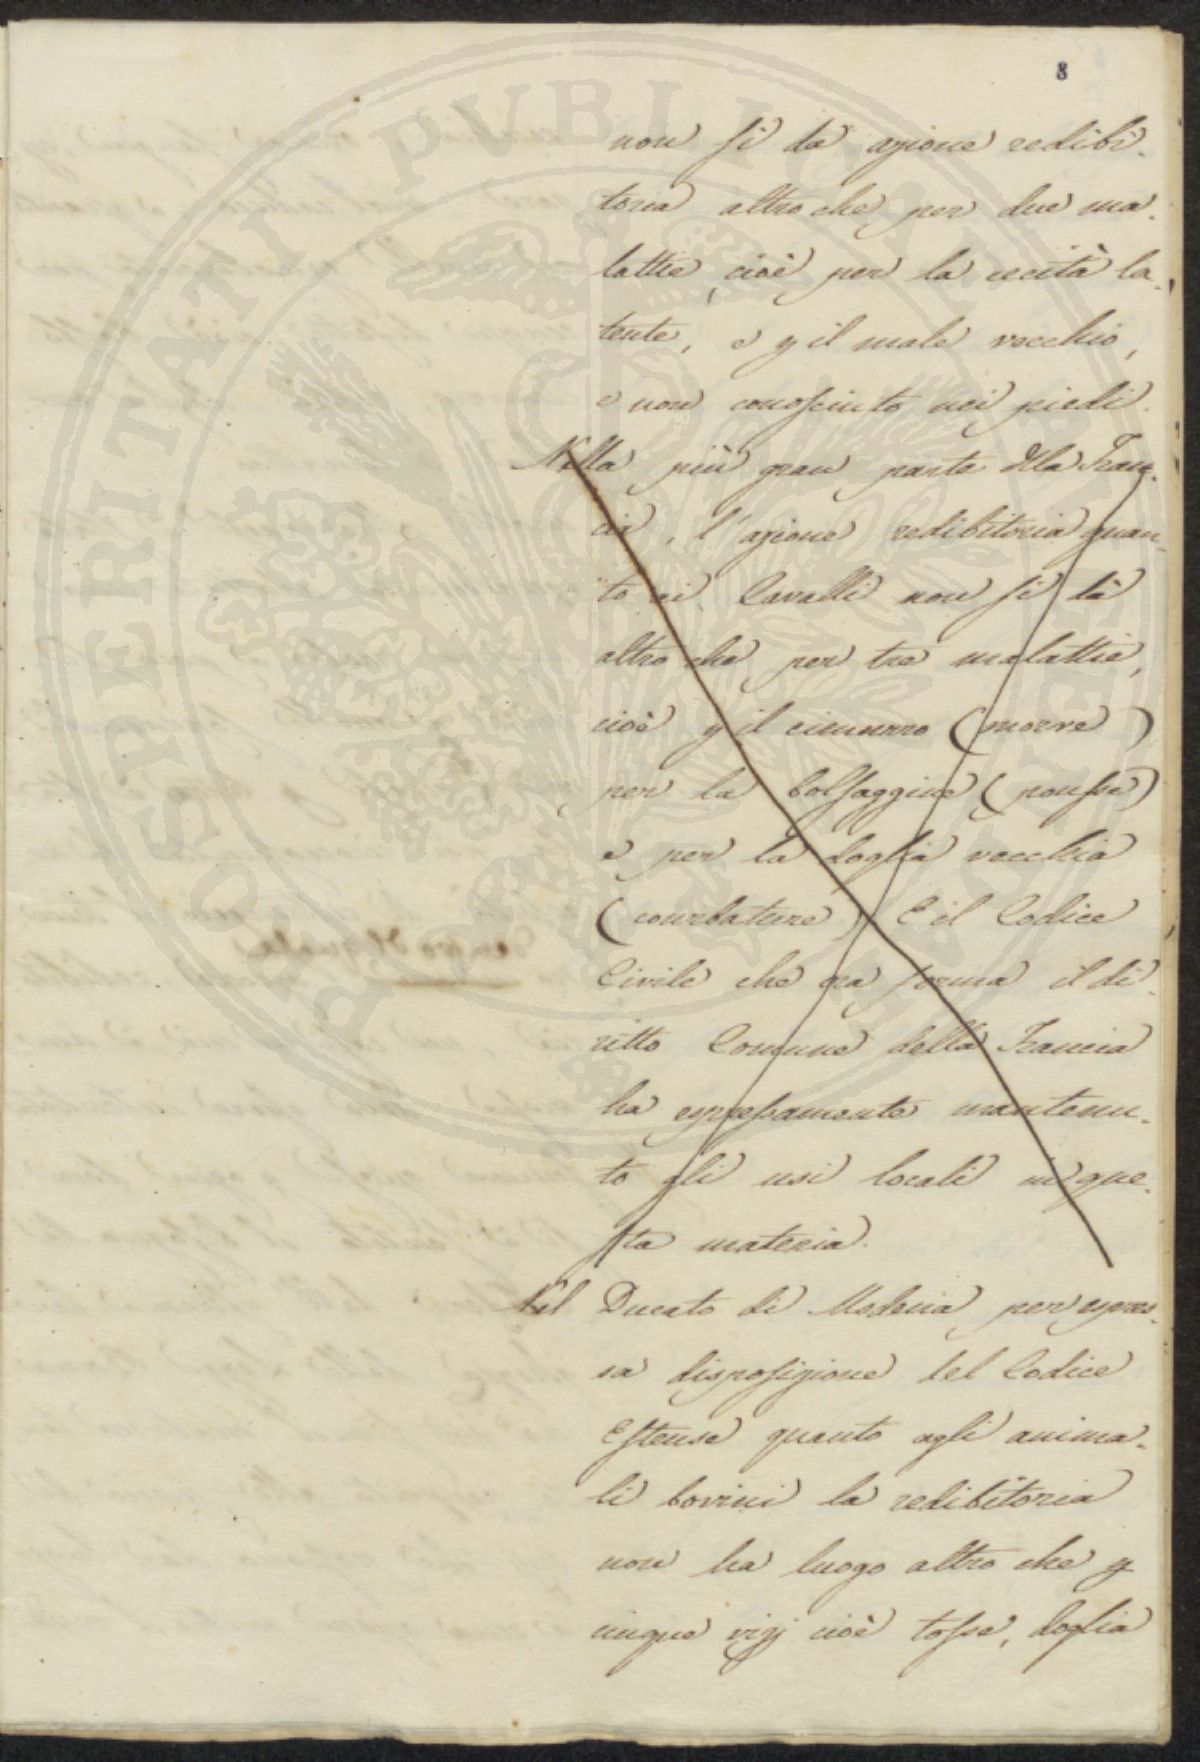 8
non si dà azione redibi-
toria altro che per due ma-
lattie, cioè per la cecità la-
tente, e p il male vecchio,
e non conosciuto nei piedi.
Nella più gran parte dlla Fran-
cia, l'azione redibitoria quan-
to ai Cavalli non si dà
altro che per tre malattie,
cioè p il cimurro (morve)
per la bolsaggine (pousse)
e per la doglia vecchia
(courbature) E il Codice
Civile che ora forma il di-
ritto Comune della Francia
ha espressamente mantenu-
to gli usi locali in que-
sta materia.
Nel Ducato di Modena per espres-
sa disposizione del Codice
Estense quanto agli anima-
li bovini la redibitoria
non ha luogo altro che p
cinque vizj cioè tosse, doglia
PROSPERITATI PUBLICAE